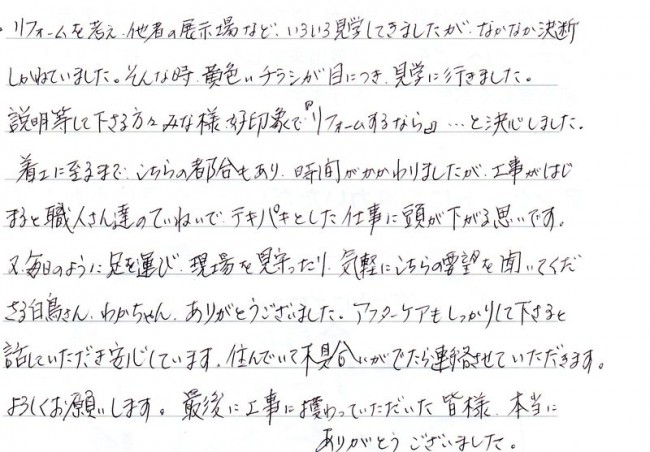 ・リフォームを考え、他者の展示場など、いろいろ見学してきましたが、なかなか決断
しかねていました。そんな時、黄色いチラシが目につき、見学に行きました。
説明等して下さる方々みな様、好印象で『リフォームするなら』…と決心しました。
着工に至るまで、こちらの都合もあり、時間がかかわりましたが、工事がはじ
まると職人さん達のていねいで、テキパキとした仕事に頭が下がる思いです。
又、毎日のように足を運び、現場を見守ったり、気軽にこちらの要望を聞いてくだ
さる白鳥さん、わかちゃん、ありがとうございました。アフターケアもしっかりして下さると
話していただき安心しています。住んでいて不具合いがでたら連絡させていただきます。
よろしくお願いします。最後に工事に携わっていただいた皆様、本当に
ありがとうございました。